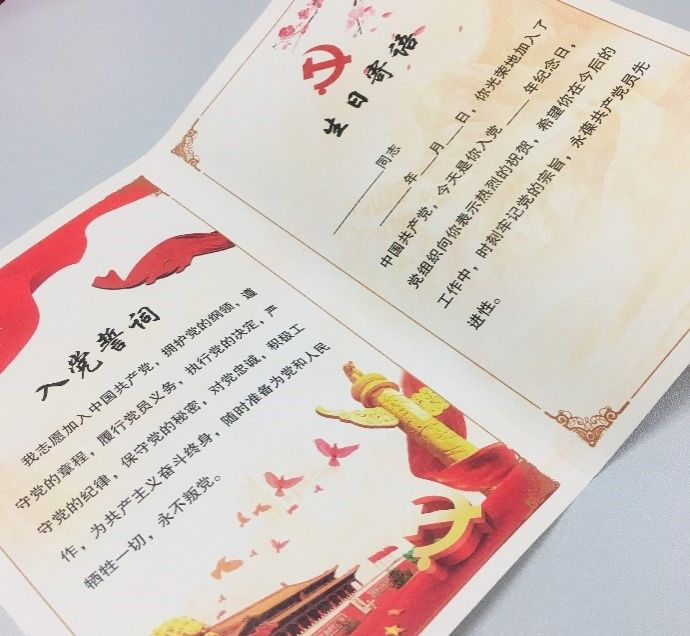 入党誓词
我志愿加入中国共产党，拥护党的纲领，遵
守党的章程，履行党员义务，执行党的决定，严
守党的纪律，保守党的秘密，对党忠诚，积极工
作，为共产主义奋斗终身，随时准备为党和人民
牺牲一切，永不叛党。
生日寄语
______同志
____年__月__日，你光荣地加入了
中国共产党，今天是你入党____年纪念日，
党组织向你表示热烈的祝贺，希望你在今后的
工作中，时刻牢记党的宗旨，永葆共产党员先
进性。